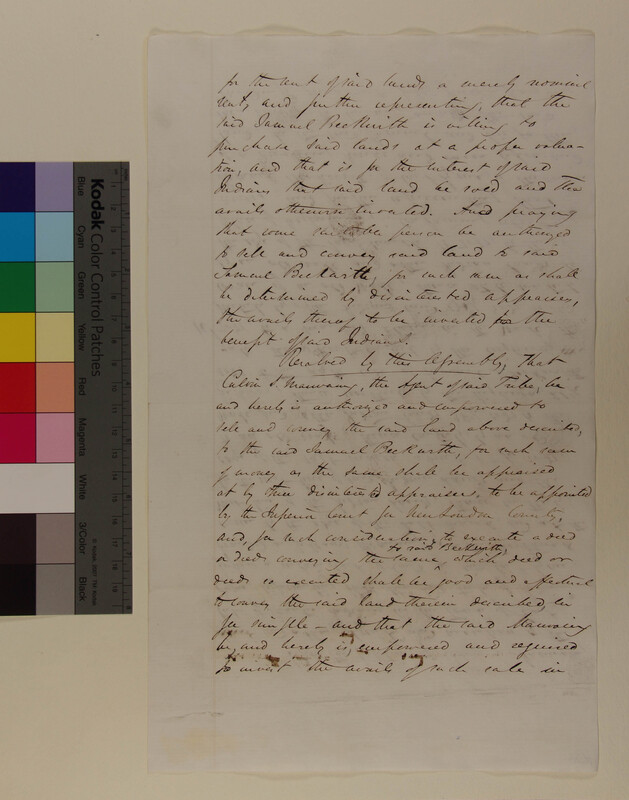 for the rent of said lands a merely nominal
rent, and further representing, that the
said Samuel Beckwith is willing to
purchase said lands at a proper valua-
tion, and that is for the interest of said
Indians that said land be sold and the
avails otherwise invested. And praying
that some suitable person be authorized
to sell and convey said land to said
Samuel Beckwith, for such sum as shall
be determined by disinterested appraisers,
the avails thereof to be invested for the
benefit of said Indians.
Resolved by this Assembly, that
Calvin, the Agent of said Tribe, be
and hereby is authorized and empowered to
sell and convey the said land above described,
to the said Samuel Beckwith, for such sum
of money as the same shall be appraised
at by three disinterested appraisers, to be appointed
by the Superior Court for New London County,
and, for such consideration, to execute a deed
to said Beckwith,
or deeds conveying the same, which deed or
deeds so executed shall be good and effectual
to convey the said land therein described, in
fee simple – and that the said Manwaring
be, and hereby is, empowered and required
to invest the avails of such sale in
Kodak Color Control Patches
Blue
Cyan
Green
Yellow
Red
Magenta
White
3/Color
Black